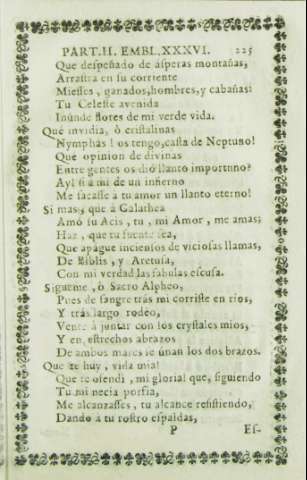 PART.II. EMBL.XXXVI. 225
Que despeñado de ásperas montañas,
Arrastra en su corriente
Miesses, ganados, hombres, y cabañas:
Tu Celeste avenida
Inunde flores de mi verde vida.
Qué invidia, ò cristalinas
Nymphas! os tengo, casta de Neptuno!
Que opinion de divinas
Entre gentes os dió llanto importuno?
Ay! si à mi de un infierno
Me sacasse a tu amor un llanto eterno!
Si mas, que à Galathea
Amó su Acis, tu, mi Amor, me amas;
Haz, que tu fuente sea,
Que apague inciensos de viciosas llamas,
De Biblis, y Aretusa,
Con mi verdad las fabulas escusa.
Sigueme, ò Sacro Alpheo,
Pues de sangre trás mi corriste en rios,
Y trás largo rodeo,
Vente à juntar con los crystales mios,
Y en estrechos abrazos
De ambos mares se únan los dos brazos.
Que te huy, vida mia!
Que te ofendi, mi gloria! que, siguiendo
Tu mi necia porfia,
Me alcanzasses, tu alcance resistiendo,
Dando à tu rostro espaldas,
P Es-